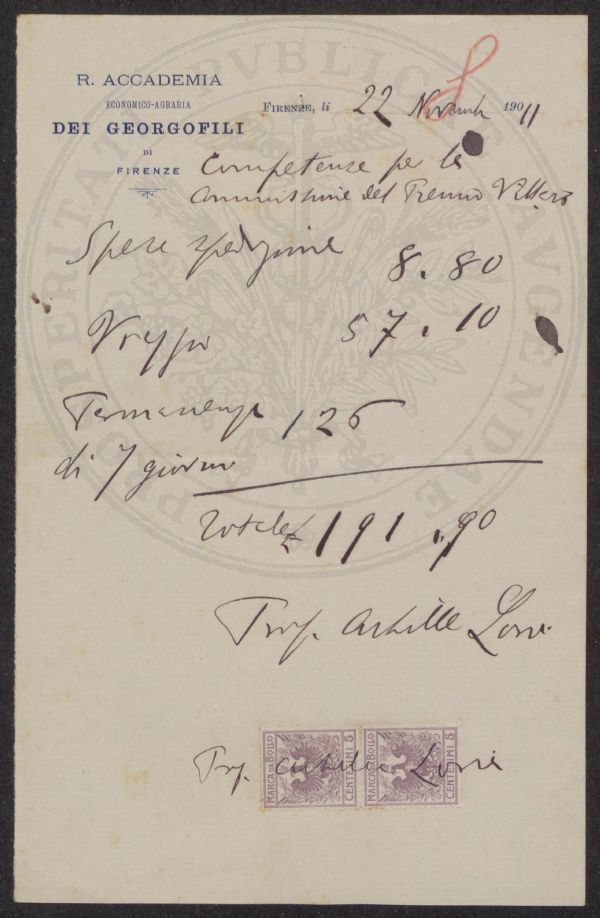 R. ACCADEMIA
ECONOMICO-AGRARIA
DEI GEORGOFILI
DI
FIRENZE
FIRENZE, li 22 Novembre 1911
Competenze per la
Commissione del Premio
Spese spedizione 8.80
Viaggio 57.10
Permanenza 126
di 7 giorni
Totale £ 191.90
Prof. Achille Loria
MARCA DA BOLLO CENTESIMI 5
MARCA DA BOLLO CENTESIMI 5
Prof. Achille Loria
PROSPERITATI PVBLICAE AVGENDAE